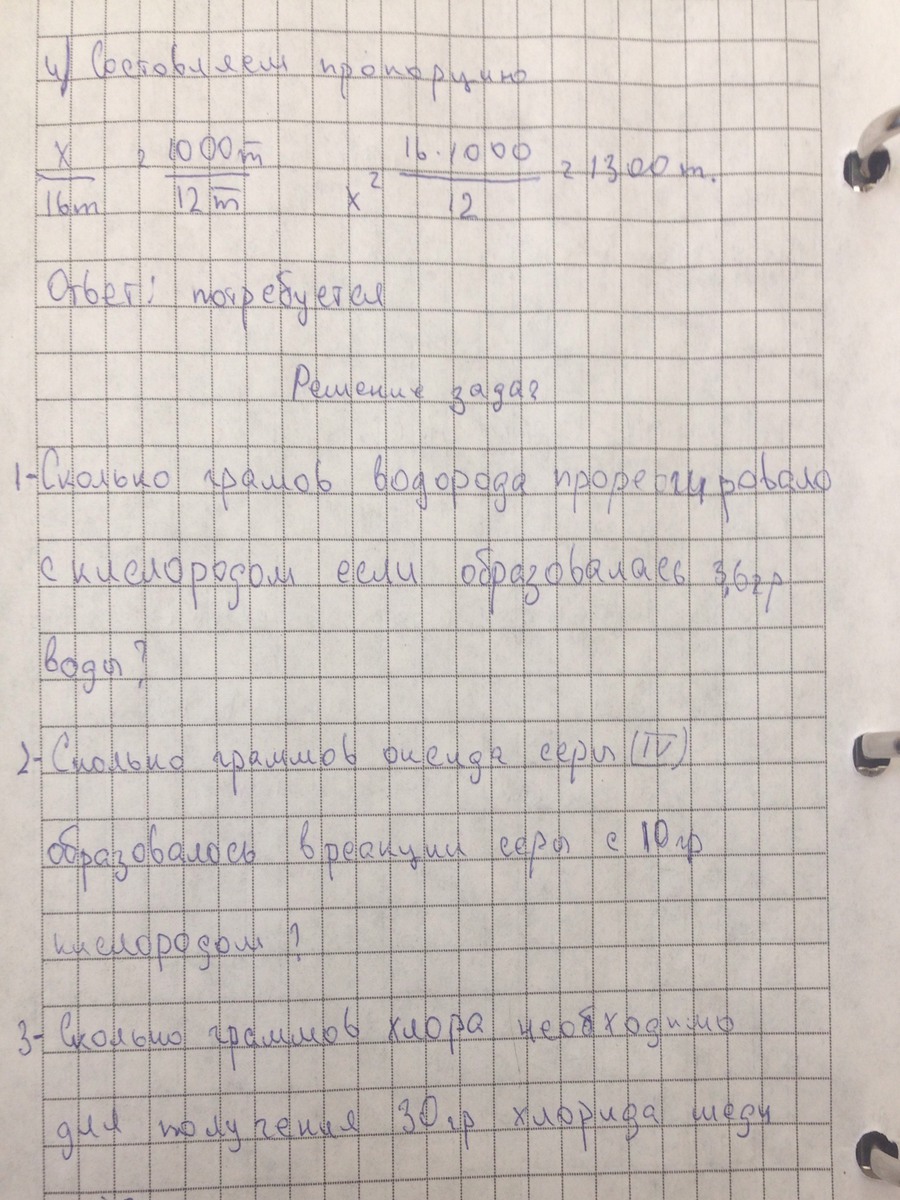 4) Составляем пропорцию
x/16т = 1000т/12т x = 16·1000/12 = 1300т.
Ответ: потребуется
Решение задач
1- Сколько грамов водорода прореагировало
с кислородом если образовалась 3,6гр
воды?
2- Сколько граммов оксида серы (IV)
образовалось в реакции серы с 10гр
кислородом?
3- Сколько граммов хлора необходимо
для получения 30гр хлорида меди